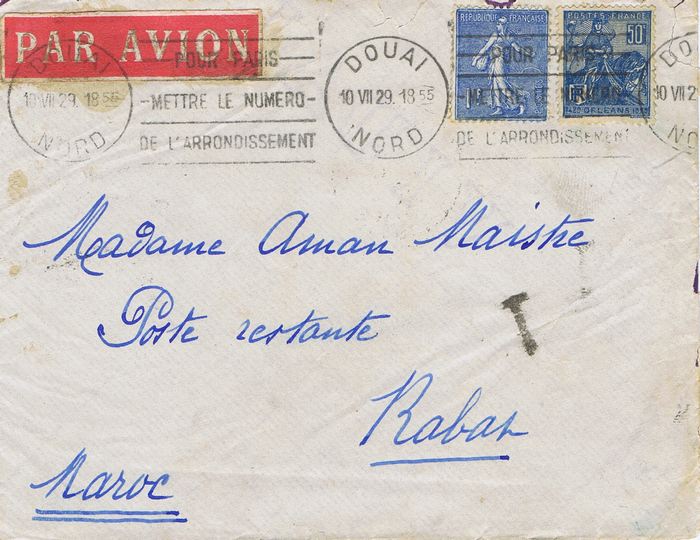 PAR AVION
DOUAI
10 VII 29. 18 55
NORD
POUR PARIS
-METTRE LE NUMERO-
DE L'ARRONDISSEMENT
DOUAI
10 VII 29. 18 55
NORD
RÉPUBLIQUE FRANÇAISE
POSTES-FRANCE
50c
ORLÉANS
POUR PARIS
METTRE LE NUMERO
DE L'ARRONDISSEMENT
DO
10 VII 2
NO
Madame Aman Maistre
Poste restante
T
Rabat
Maroc